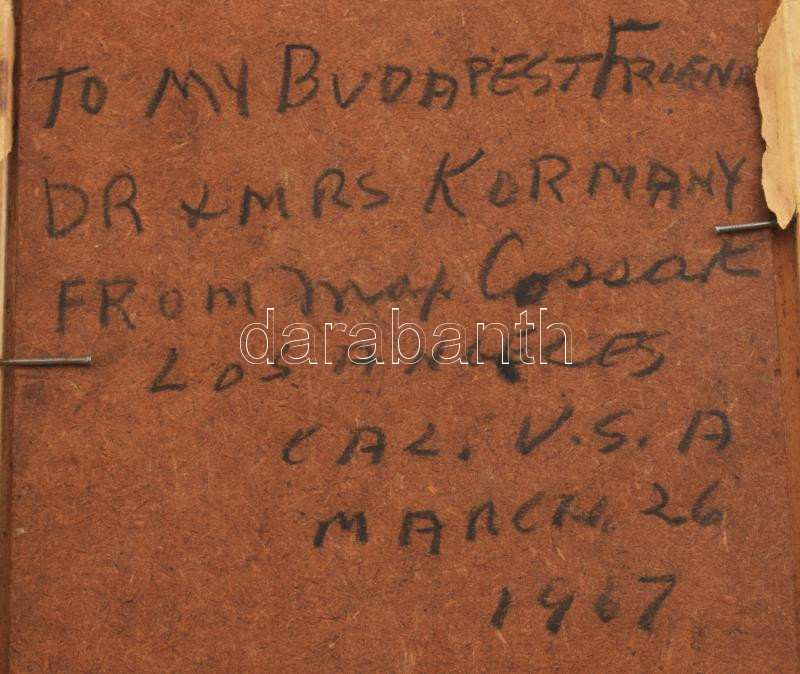 TO MY BUDAPEST FRIEND
DR & MRS KORMANY
FROM Max Cossak
darabanth
LOS ANGELES
CAL. U.S.A
MARCH. 26
1967